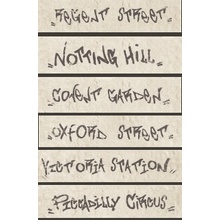 "REGENT STREET"
"NOTTING HILL"
"COVENT GARDEN"
"OXFORD STREET"
"VICTORIA STATION"
"PICCADILLY CIRCUS"